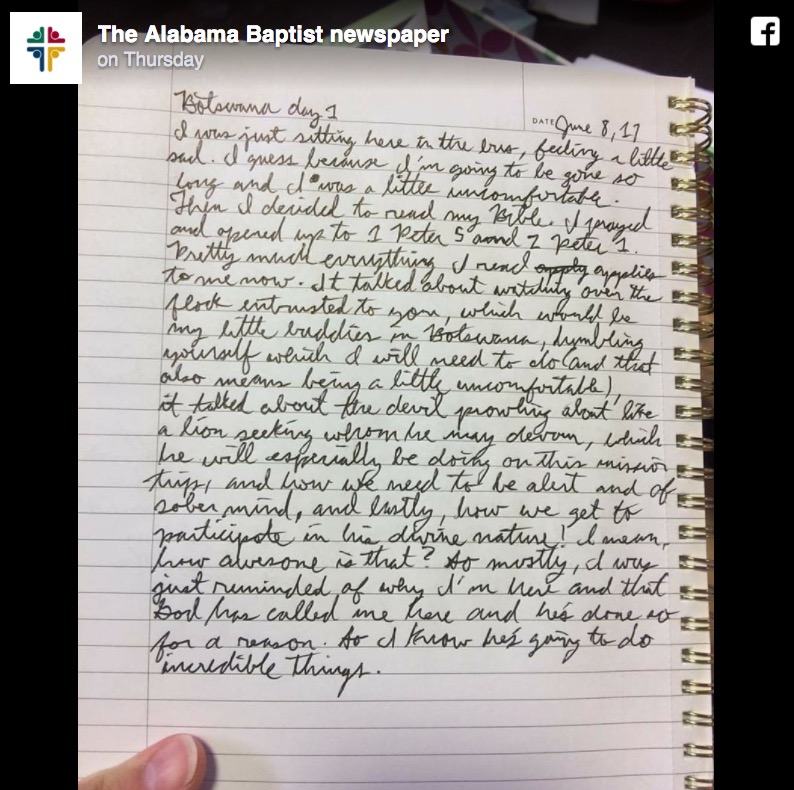 The Alabama Baptist newspaper
on Thursday
Botswana day 1
DATE June 8, 17
I was just sitting here in the bus, feeling a little
sad. I guess because I'm going to be gone so
long and I was a little uncomfortable.
Then I decided to read my Bible. I prayed
and opened up to 1 Peter 5 and 2 Peter 1.
Pretty much everything I read apply applies
to me now. It talked about watching over the
flock entrusted to you, which would be
my little buddies in Botswana, humbling
yourself which I will need to do (and that
also means being a little uncomfortable),
it talked about the devil prowling about like
a lion seeking whom he may devour, which
he will especially be doing on this mission
trip, and how we need to be alert and of
sober mind, and lastly, how we get to
participate in his divine nature! I mean,
how awesome is that? So mostly, I was
just reminded of why I'm here and that
God has called me here and he's done so
for a reason. So I know he's going to do
incredible things.